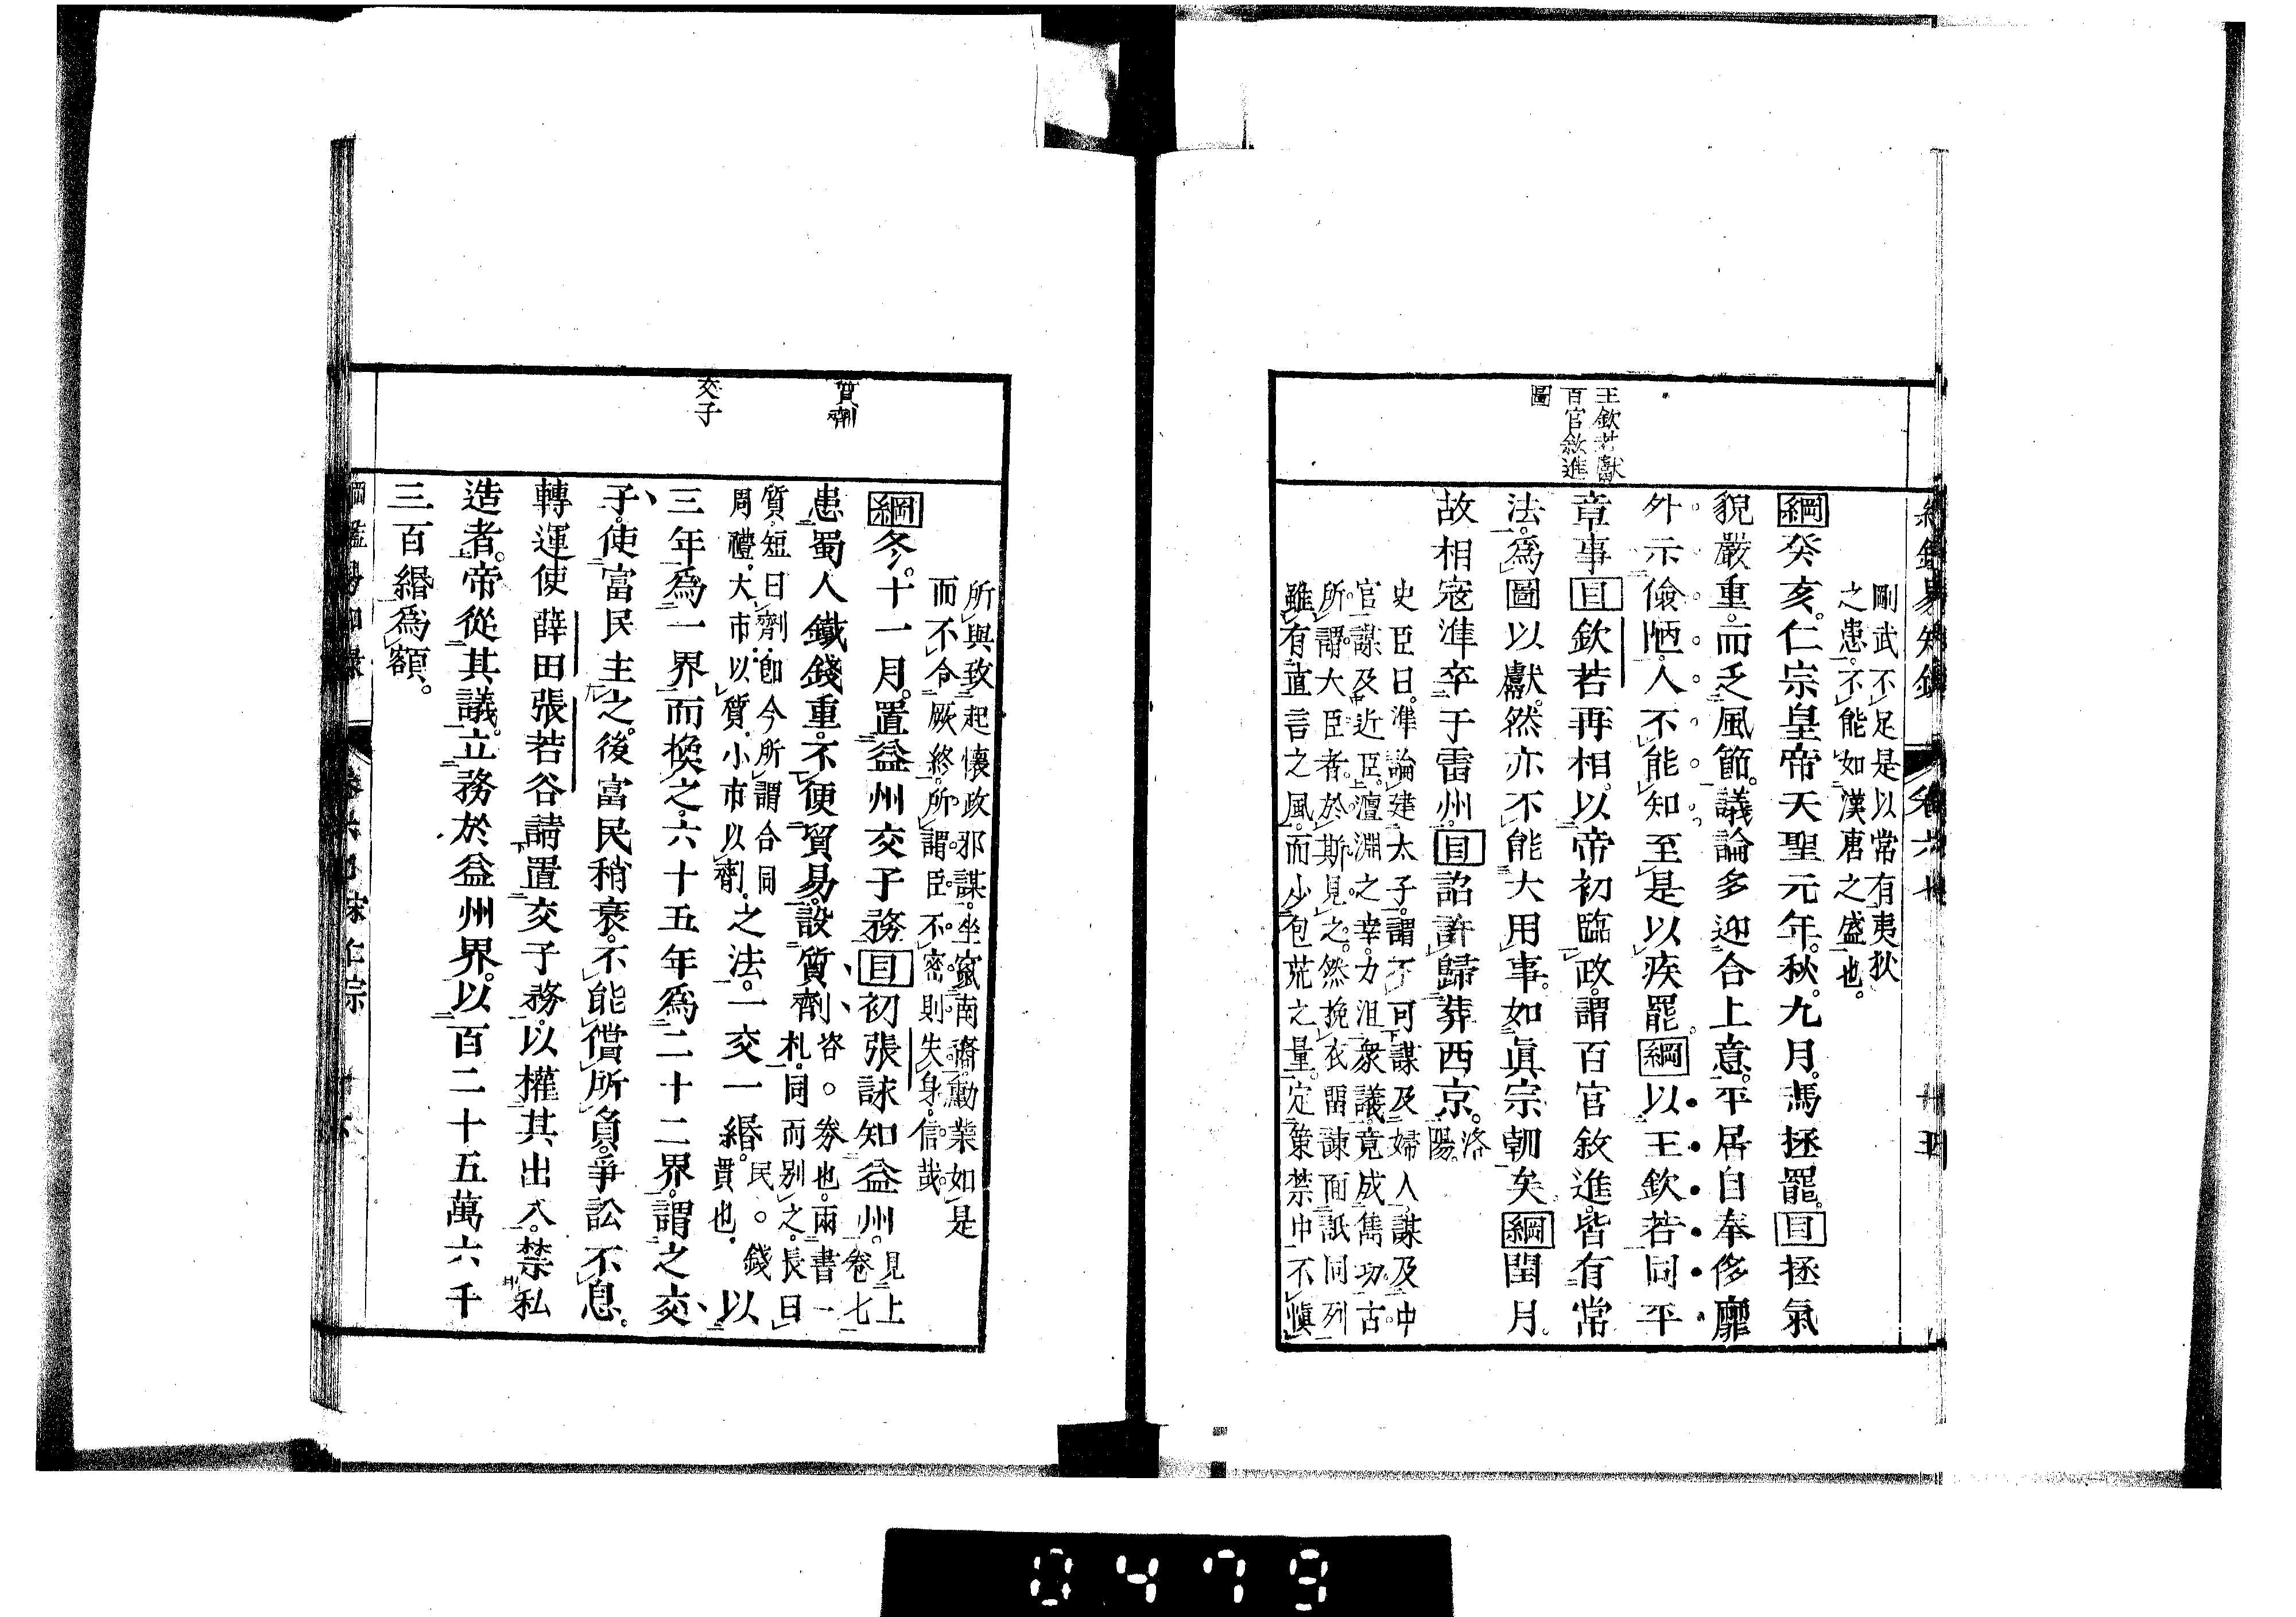 綱鑑易知錄
剛武不足是以常有夷狄
之患不能如漢唐之盛也。
綱癸亥。仁宗皇帝天聖元年。秋。九月。馮拯罷。目拯氣
貌嚴重。而乏風節。議論多迎合上意。平居自奉侈靡
外示儉陋。人不能知至是以疾罷。綱以王欽若同平
章事目欽若再相。以帝初臨政。謂百官敘進。皆有常
法。爲圖以獻。然亦不能大用事。如眞宗朝矣。綱閏月。
故相寇準卒于雷州。目詔許歸葬西京。洛陽。
史臣曰。準論建太子。謂不可謀及婦人。謀及中
官。謀及近臣。澶淵之幸。力沮衆議。竟成雋功。古
所謂大臣者。於斯見之。然挽衣留諫面詆同列
雖有直言之風。而少包荒之量。定策禁中不愼
王欽若獻
百官敘進
圖
所與致起懷政邪謀。坐竄南裔。勳業如是
而不令厥終。所謂臣不密則失身。信哉。
綱冬。十一月。置益州交子務目初張詠知益州。見上卷七
患蜀人鐵錢重。不便貿易。設質劑咨。券也。兩書一
札。同而别之。長曰
質。短曰劑。卽今所謂合同
周禮。大市以質。小市以劑。之法。一交一緡。民。錢貫也。以
三年爲一界而換之。六十五年爲二十二界。謂之交
子。使富民主之。後富民稍衰。不能償所負。爭訟不息。
轉運使薛田張若谷請置交子務。以權其出入。禁私
造者。帝從其議。立務於益州界。以百二十五萬六千
三百緡爲額。
質劑
交子
綱鑑易知錄